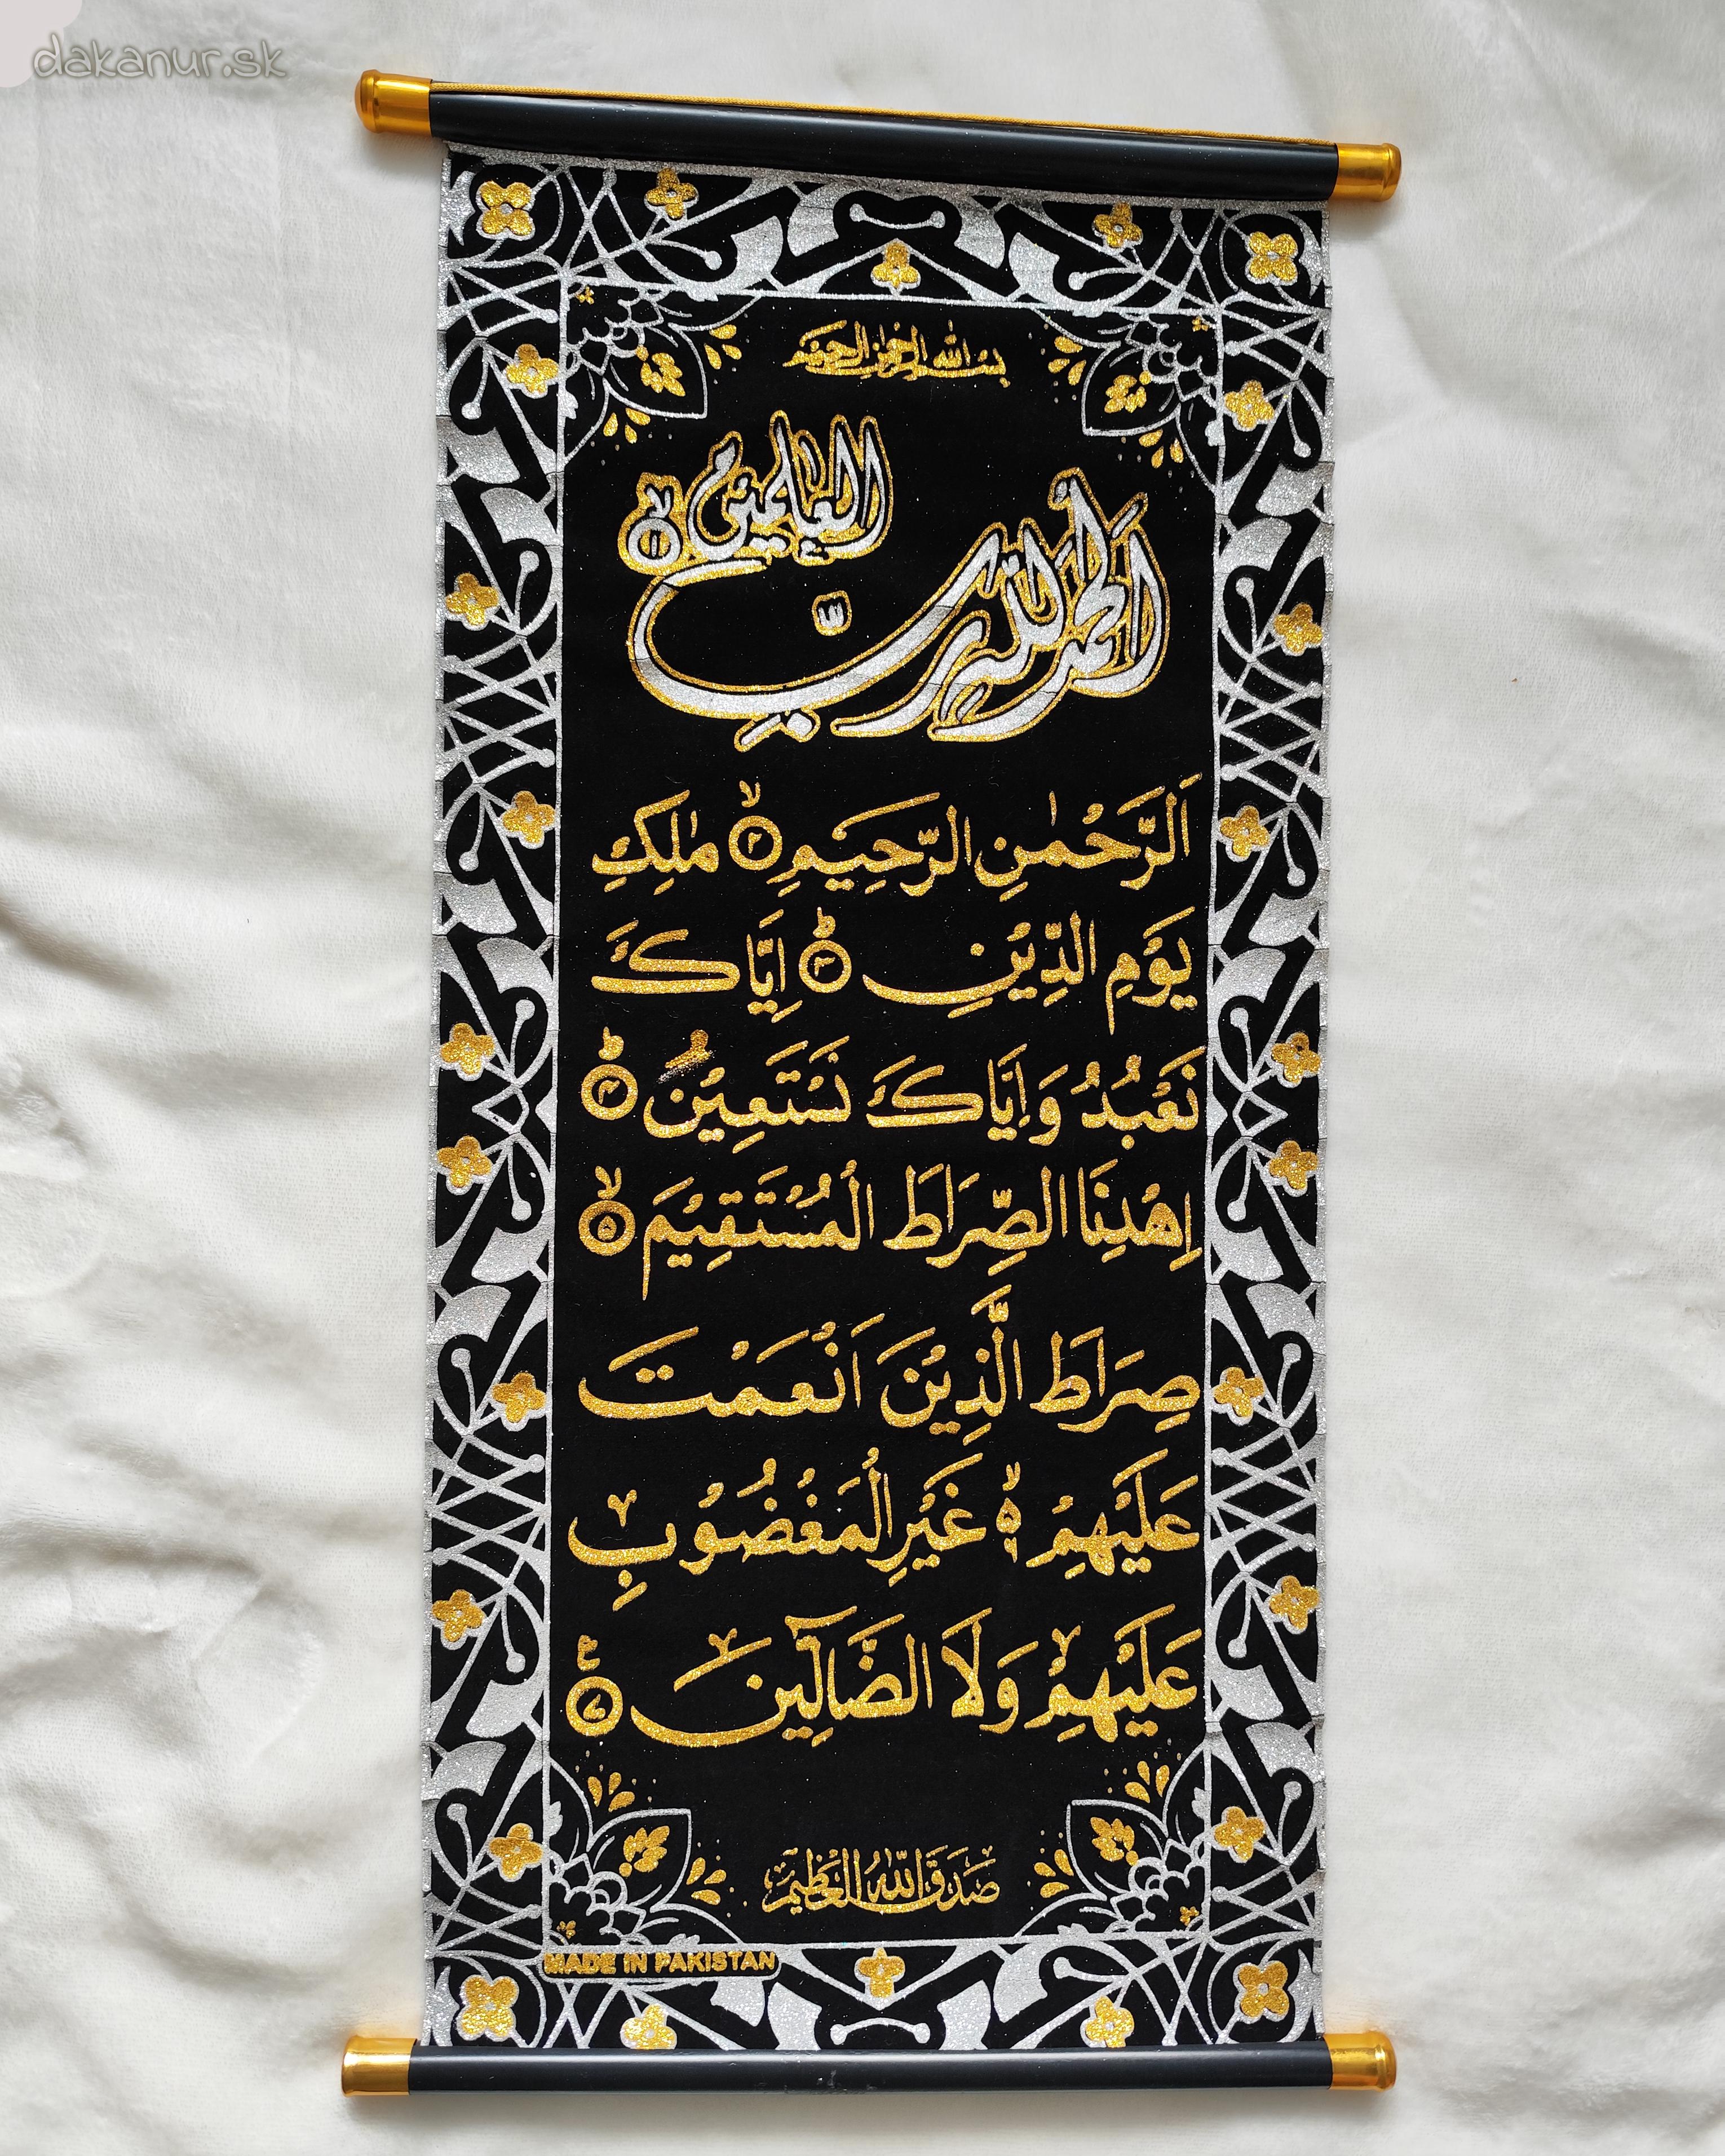 dakanur.sk
بسم الله الرحمن الرحيم
الحمد لله رب العالمين ۱
اَلرَّحْمٰنِ الرَّحِيْمِ ۲ مٰلِكِ
يَوْمِ الدِّيْنِ ۳ اِيَّاكَ
نَعْبُدُ وَاِيَّاكَ نَسْتَعِيْنُ ۴
اِهْدِنَا الصِّرَاطَ الْمُسْتَقِيْمَ ۵
صِرَاطَ الَّذِيْنَ اَنْعَمْتَ
عَلَيْهِمْ ۙ۬ غَيْرِ الْمَغْضُوْبِ
عَلَيْهِمْ وَلَا الضَّآلِّيْنَ ۷
صَدَقَ اللّٰهُ الْعَظِيْم
MADE IN PAKISTAN